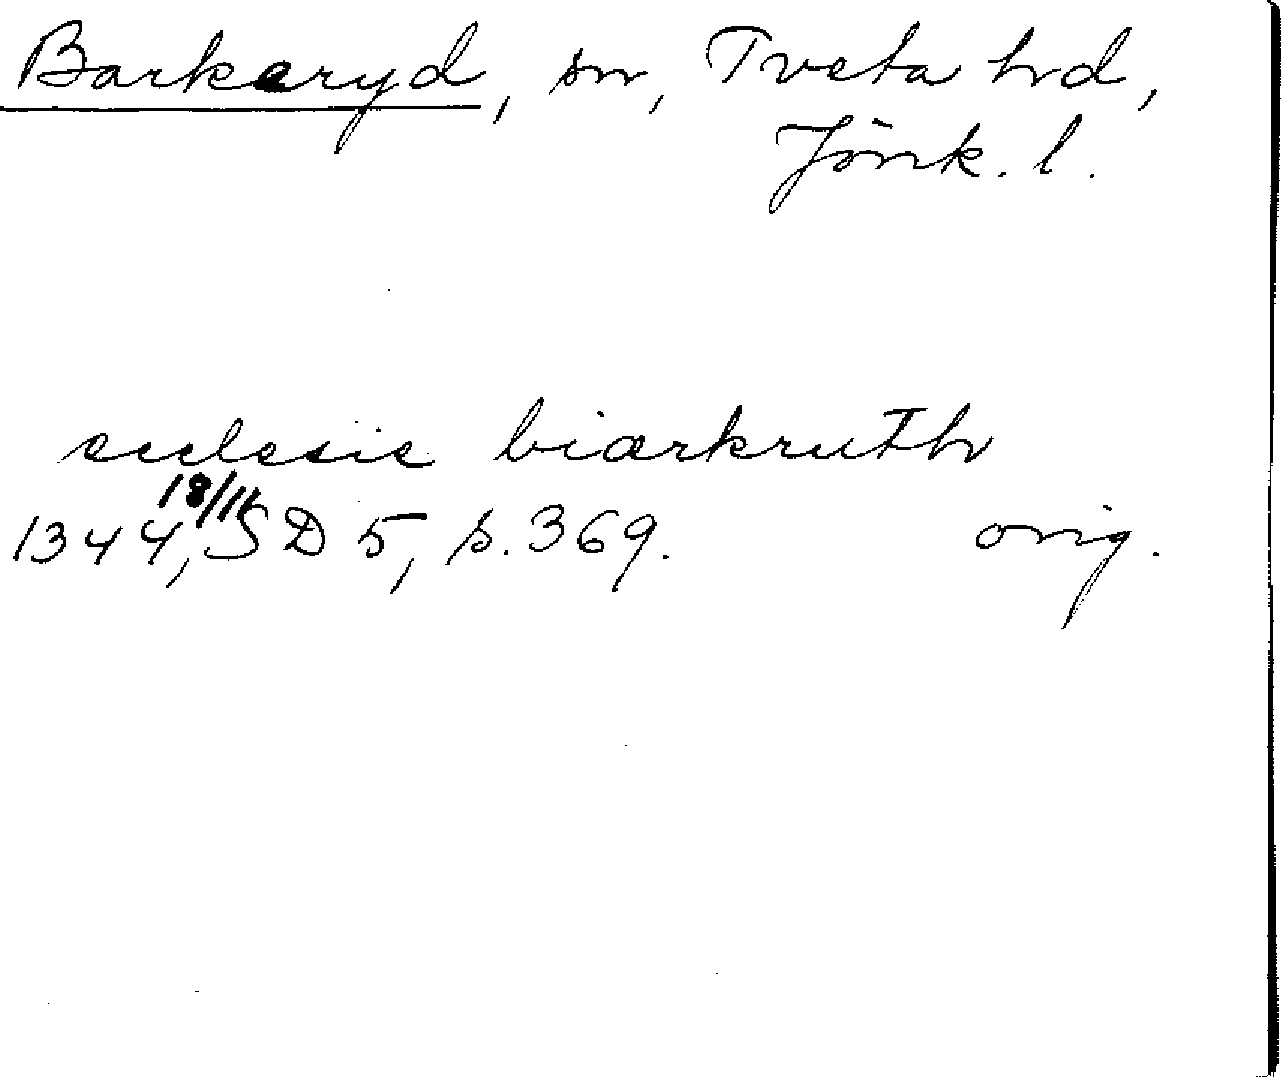 Barkeryd, sn, Tveta hrd,
Jönk. l.
ecclesie biærkruth
18/11
1344, SD 5, s. 369. orig.